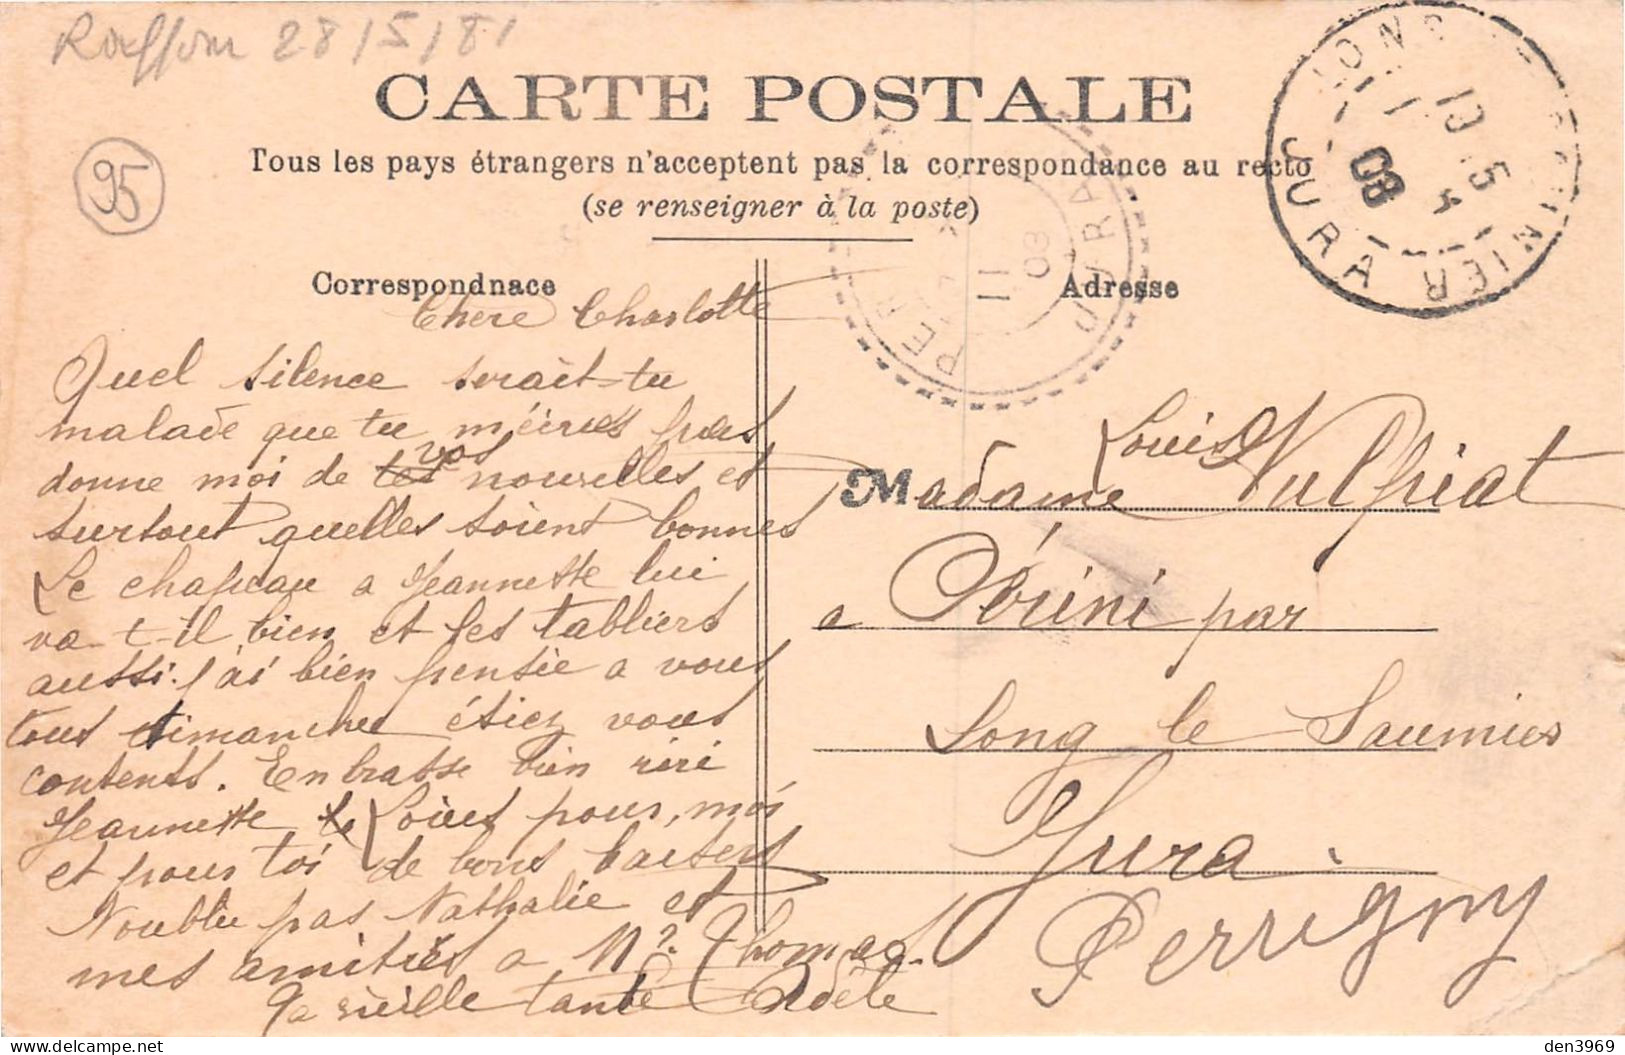 28/5/81
95
CARTE POSTALE
Tous les pays étrangers n'acceptent pas la correspondance au recto
(se renseigner à la poste)
LONS
JURA
10 15
08
11
08
JURA
Correspondnace
Adresse
Chere Charlotte
Quel silence serait-tu
malade que tu m'écives pas
donne moi de tes vos nouvelles et
surtout quelles soient bonnes
Le chapeau a Jeannette lui
va-t-il bien et ses tabliers
aussi. j'ai bien pensée a vous
tous dimanche étiez vous
contents. Enbrasse bien riri
Jeannette, Loius pour, moi
et pour toi de bons baisers
Noublie pas Nathalie et
mes amitiés a Thomas.
Ta vieille tante Adèle
Madame Louis Vulpiat
a Périni par
Long le Saunier
Jura.
Perrigny
den3969